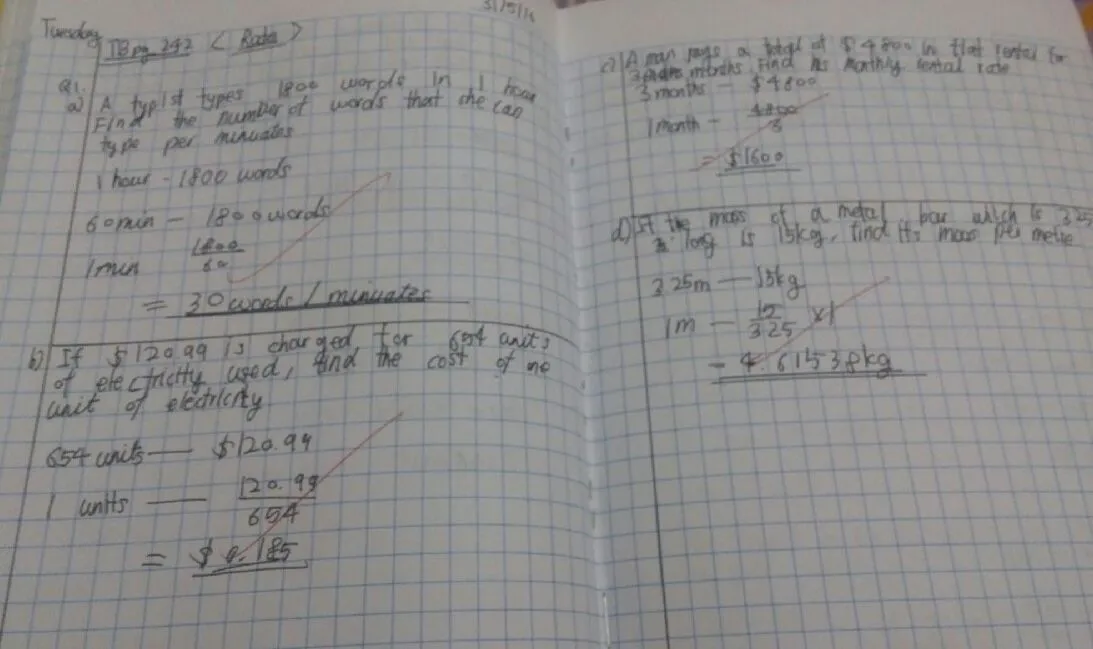 Tuesday
31/5/16
TB pg 242 < Rate >
Q1.
a) A typist types 1800 words in 1 hour
Find the number of words that she can
type per minuates
1 hour - 1800 words
60min - 1800words
1800
1min 60
= 30 words / minuates
b) If $120.99 is charged for 654 units
of electricity used, find the cost of one
unit of electricity
654 units — $120.99
1 units — 120.99
654
= $ 0.185
c) A man pays a total of $4800 in flat rental for
3 months. Find his monthly rental rate
3 months - $4800
1 month - 4800
3
= $1600
d) If the mass of a metal bar which is 3.25
long is 15kg, find its mass per metre
3.25m — 15kg
1m - 15 x1
3.25
- 4.61538kg